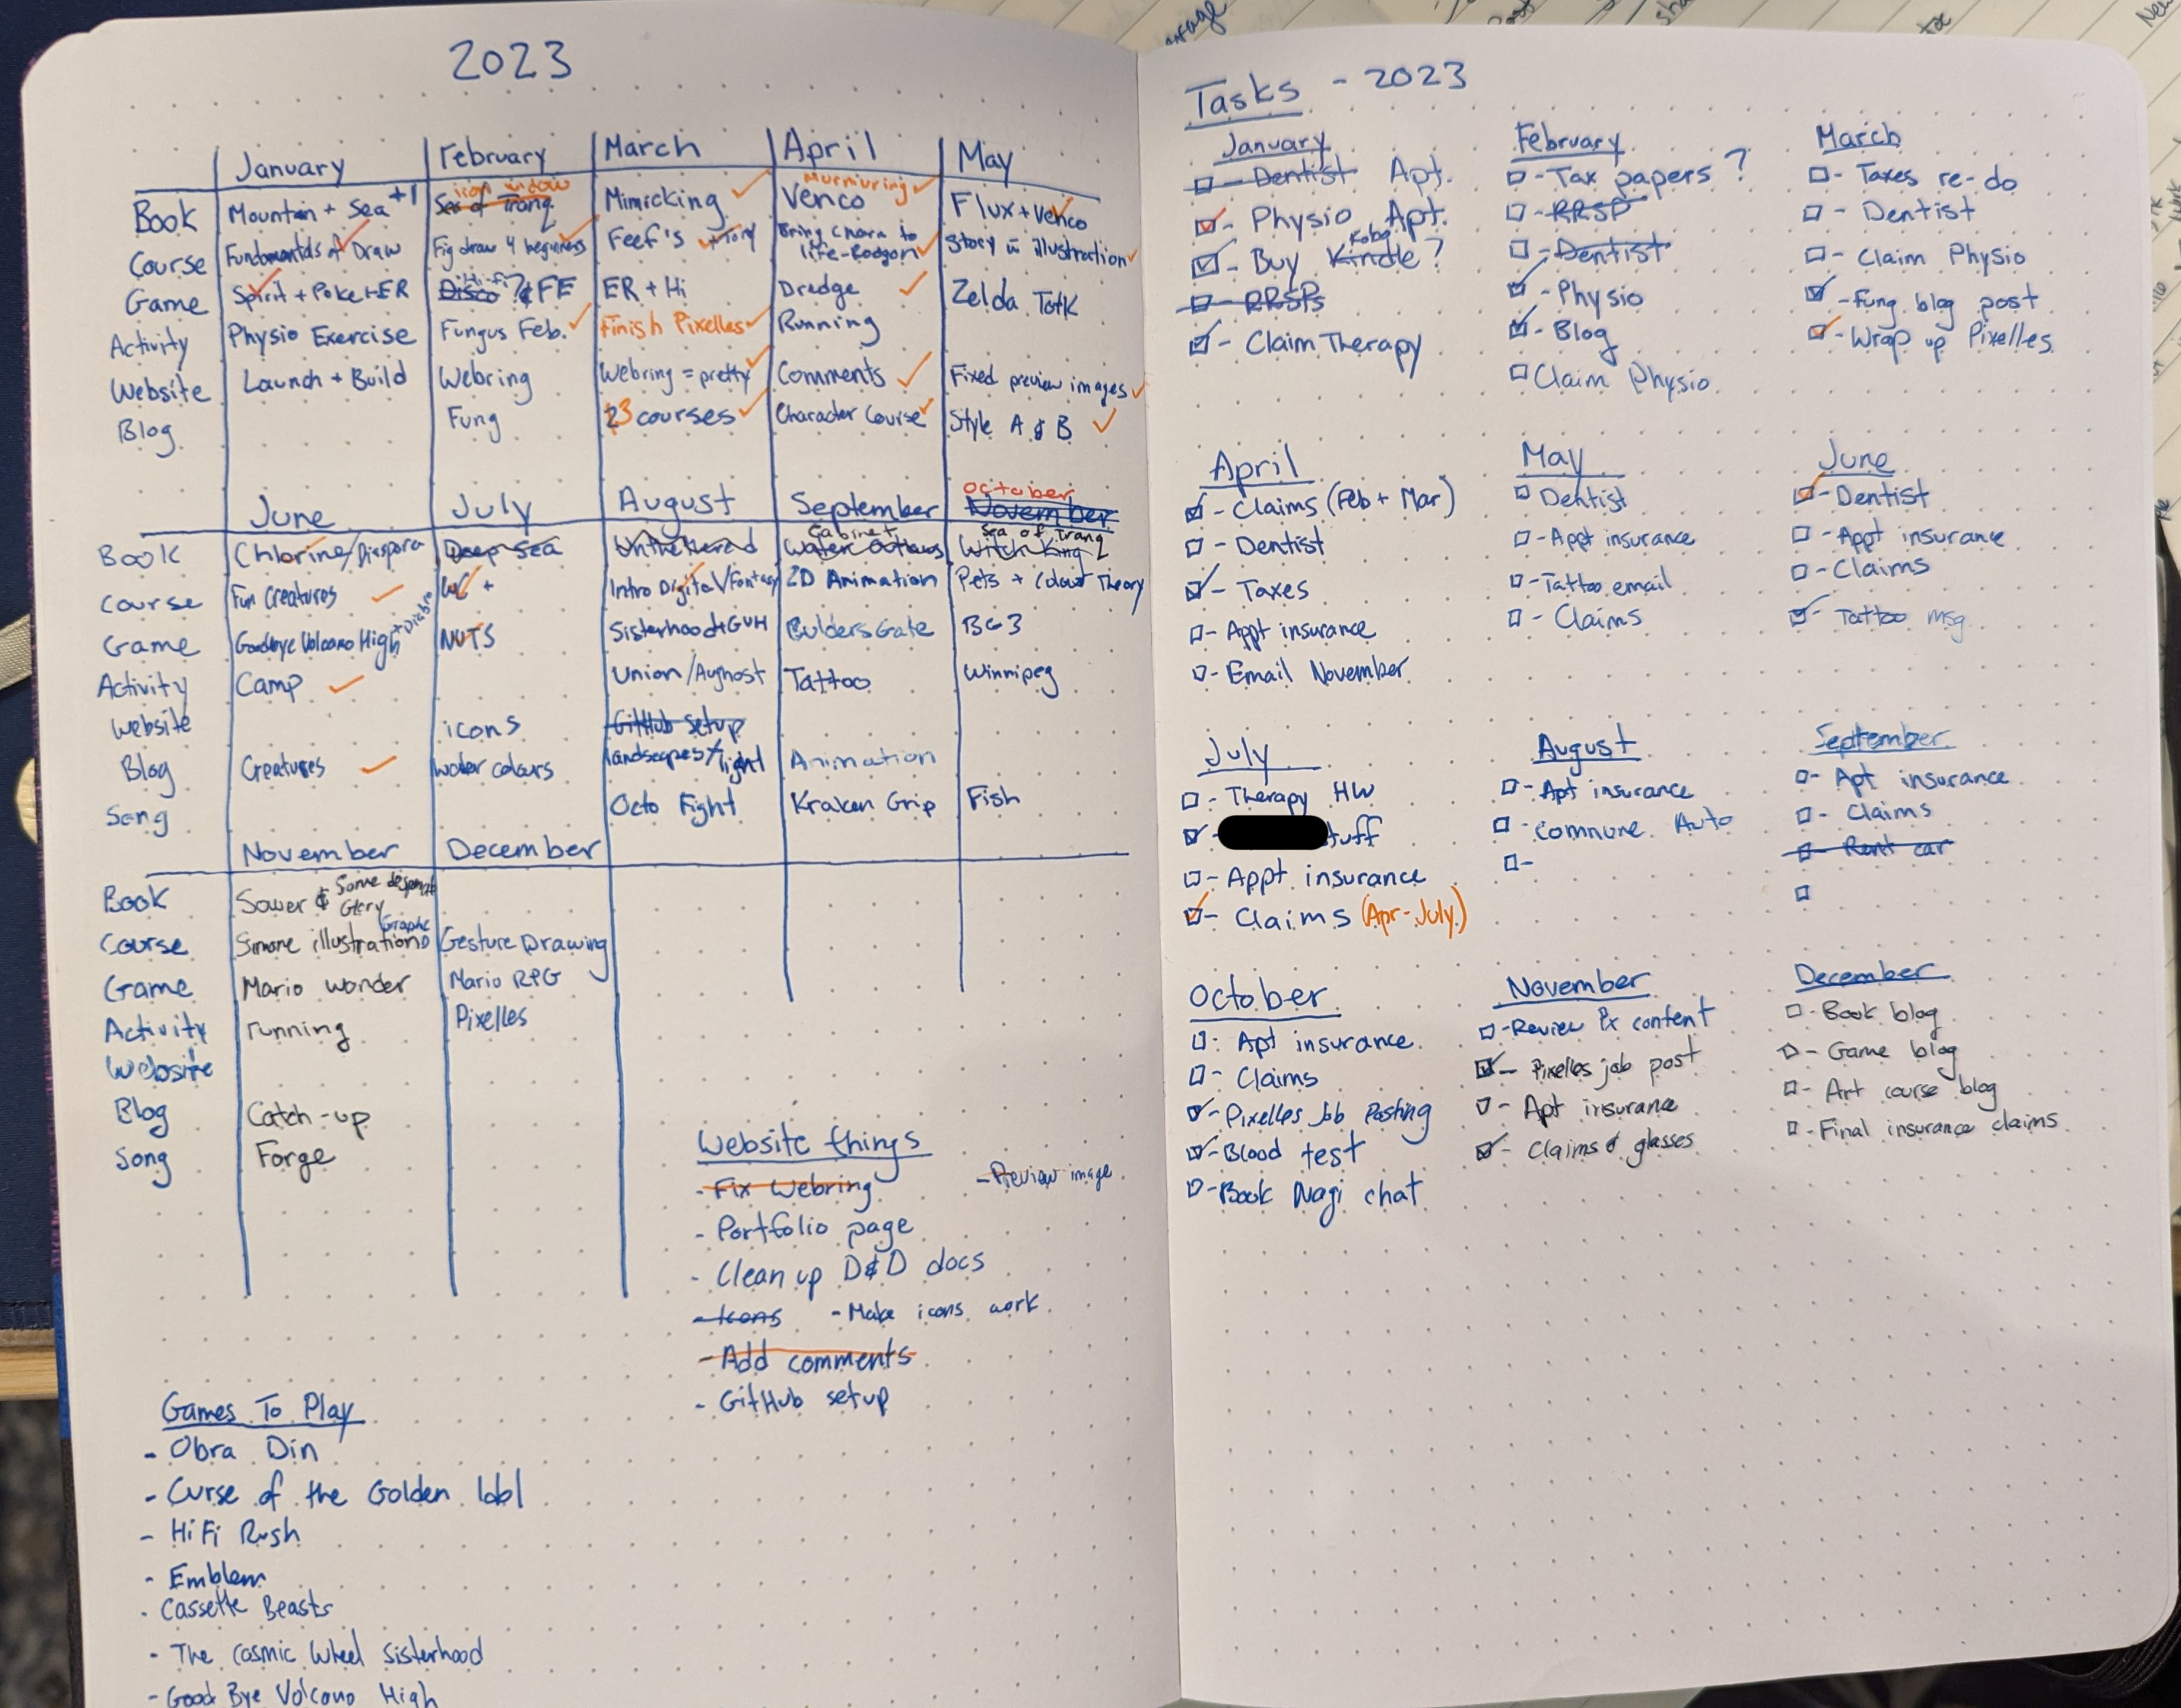 2023
January February March April May
Book Mountain + Sea +1 Sea of Trang iron widow Mimicking Venco Murmuring Flux + Venco
Course Fundamentals of Draw Fig draw 4 beginners Feef's + Tony Bring chara to life - Rodgon Story in illustration
Game Spirit + Poke + ER Disco Hi-fi? & FE ER + Hi Dredge Zelda TotK
Activity Physio Exercise Fungus Feb. Finish Pixelles Running
Website Launch + Build Webring Webring = pretty Comments Fixed preview images
Blog Fung 3 courses Character Course Style A & B
June July August September November October
Book Chlorine/Diaspora Deep Sea Untethered Water Outlaws Cabinet Witch King Sea of Trang
Course Fun Creatures WC + Intro Digital/Fantasy 2D Animation Pets + Colour Theory
Game Goodbye Volcano High + Diablo NUTS Sisterhood + GVH Bulders Gate BG3
Activity Camp Union/Aughost Tattoo Winnipeg
Website icons GitHub setup
Blog Creatures water colours landscapes/light Animation
Song Octo Fight Kraken Grip Fish
November December
Book Sower & Some desperate Glory
Course Simone illustration Graphic Gesture Drawing
Game Mario wonder Mario RPG
Activity running Pixelles
Website
Blog Catch-up
Song Forge
Website things
- Fix Webring
- Preview image
- Portfolio page
- Clean up D&D docs
- Icons - Make icons work
- Add comments
- GitHub setup
Games To Play
- Obra Din
- Curse of the Golden Idol
- HiFi Rush
- Emblem
- Cassette Beasts
- The Cosmic Wheel Sisterhood
- Good Bye Volcano High
Tasks - 2023
January
- Dentist Apt.
- Physio Apt.
- Buy Kindle Kobo?
- RRSPs
- Claim Therapy
February
- Tax papers?
- RRSP
- Dentist
- Physio
- Blog
Claim Physio
March
- Taxes re-do
- Dentist
- Claim Physio
- Fung blog post
- Wrap up Pixelles
April
- Claims (Feb + Mar)
- Dentist
- Taxes
- Appt insurance
- Email November
May
Dentist
- Appt insurance
- Tattoo email
- Claims
June
- Dentist
- Appt insurance
- Claims
- Tattoo msg
July
- Therapy HW
- tuff
- Appt insurance
- Claims (Apr-July)
August
- Apt insurance
- commune Auto
-
September
- Apt insurance
- Claims
- Rent car
October
: Apt insurance
- Claims
- Pixelles Job Posting
- Blood test
- Book Nagi chat
November
- Review Px content
- Pixelles job post
- Apt insurance
- Claims & glasses
December
- Book blog
- Game blog
- Art course blog
- Final insurance claims